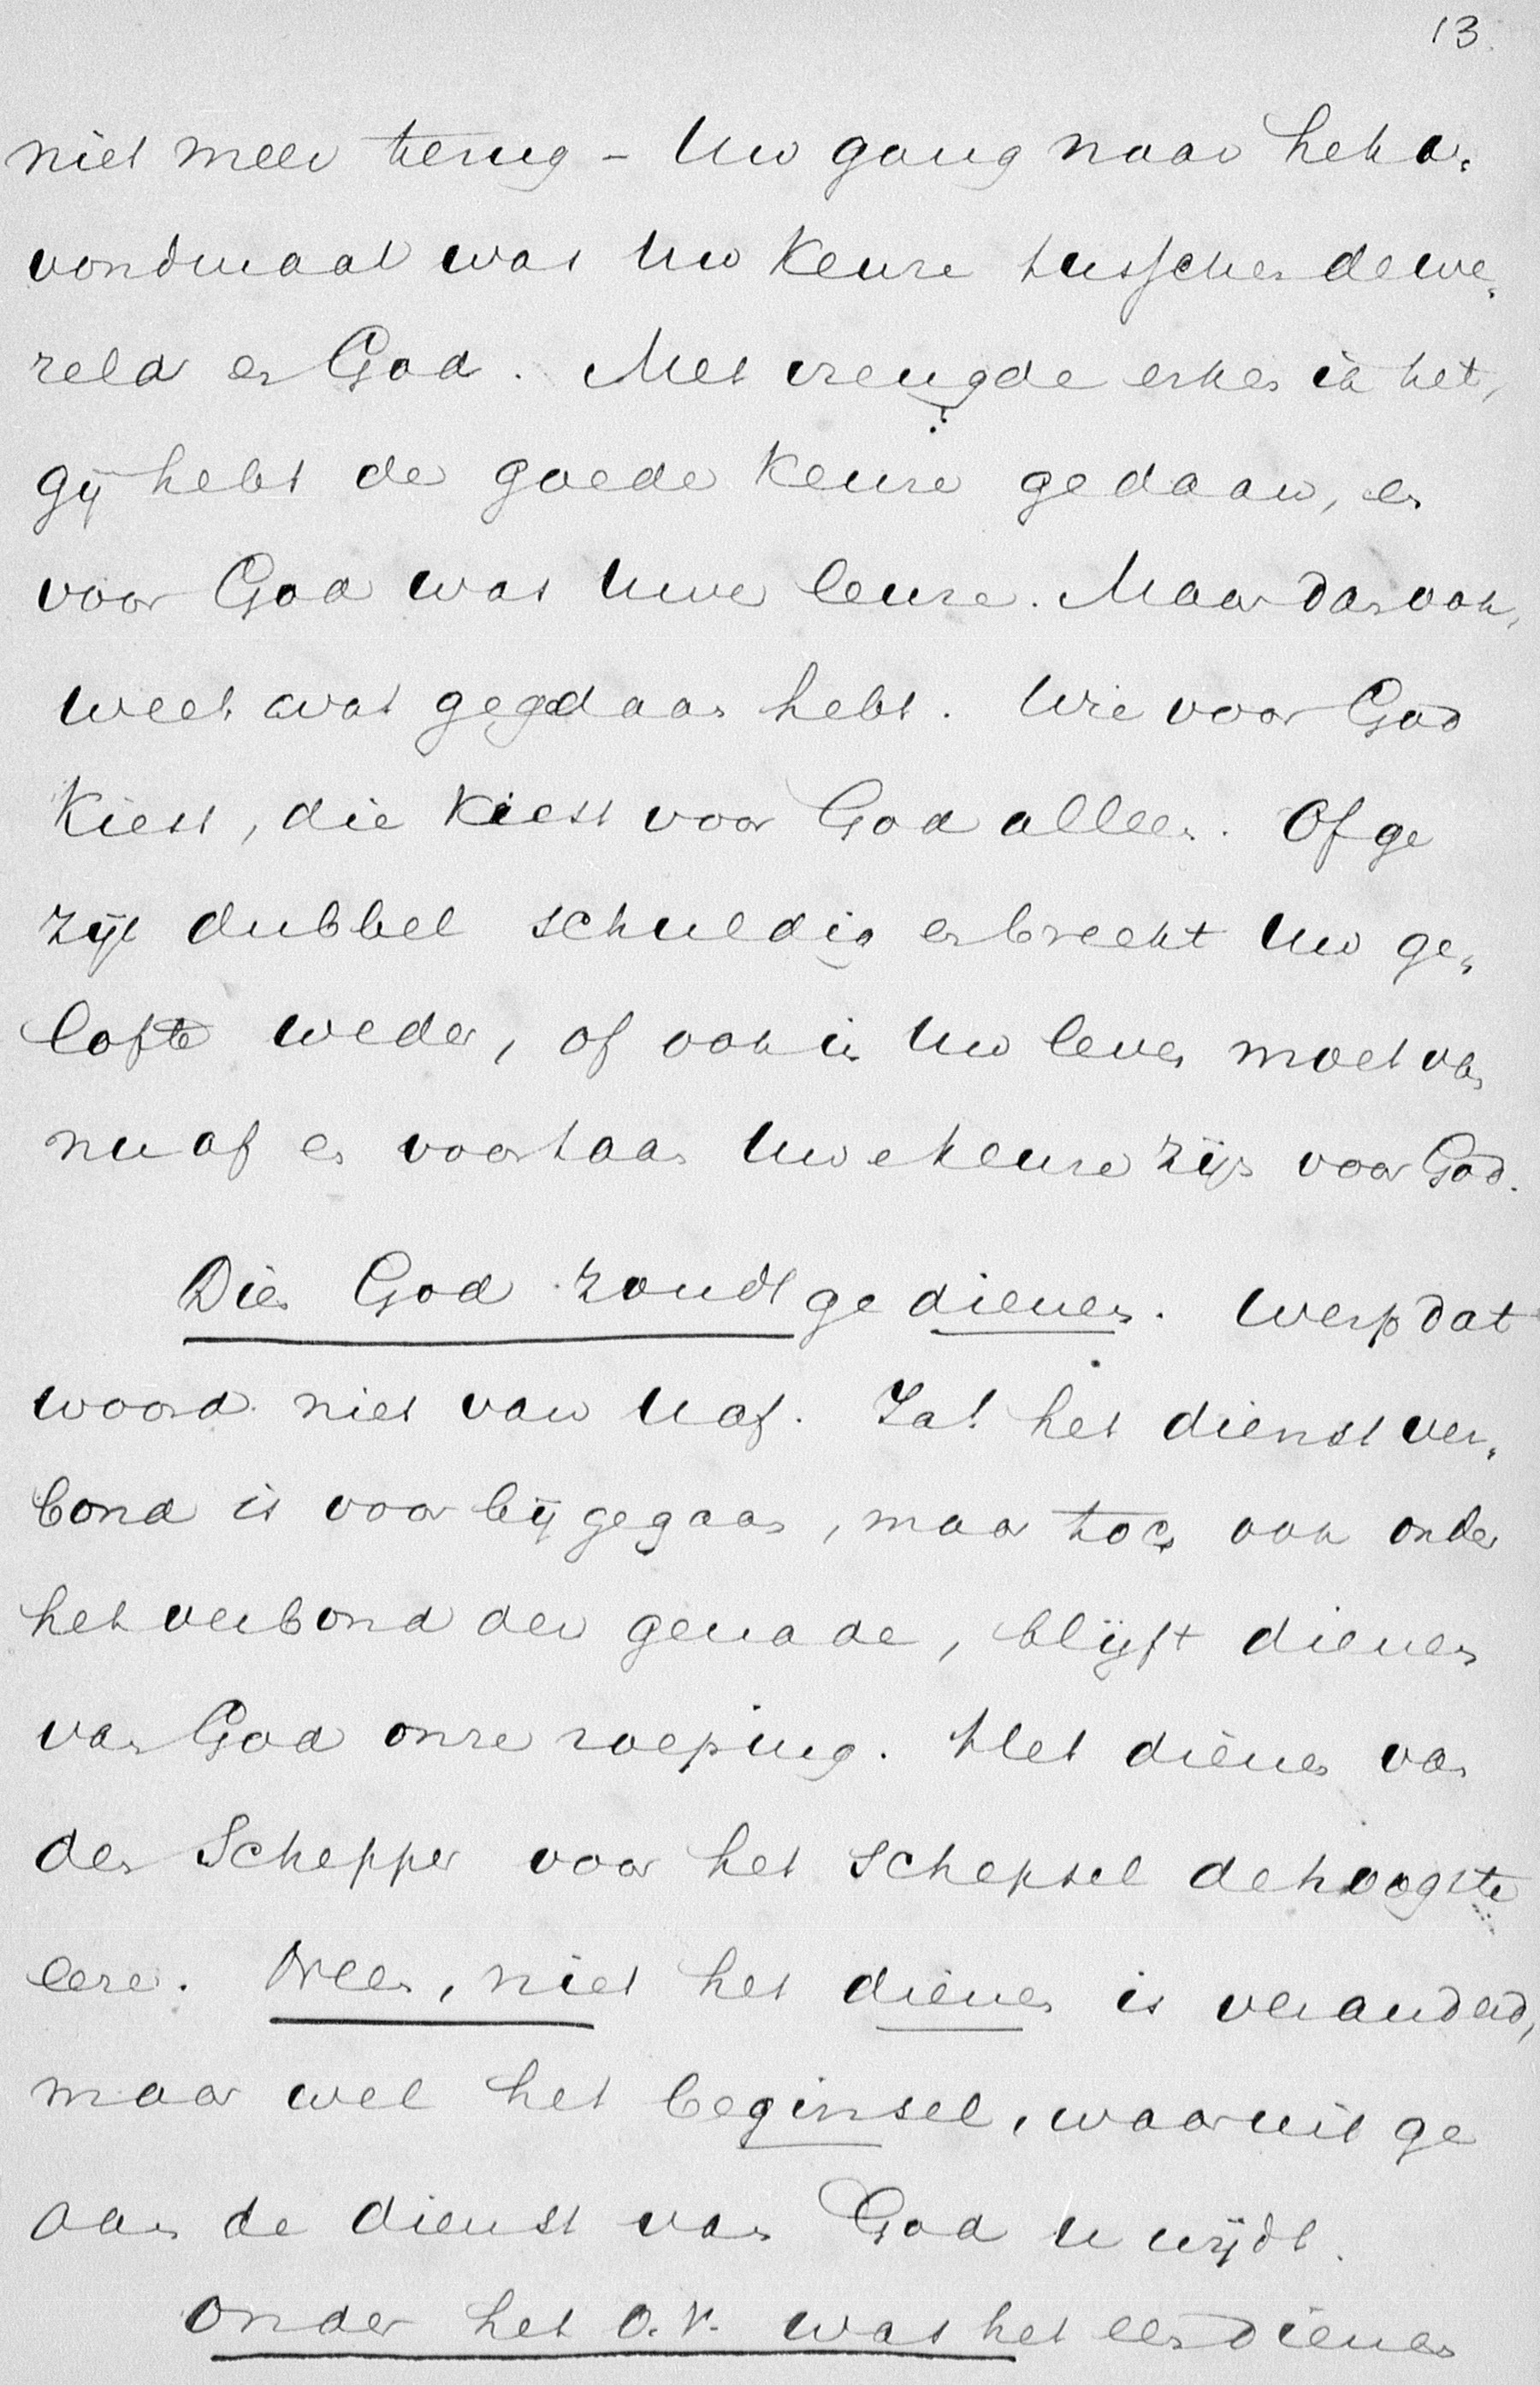 13.
niet meer terug - Uw gang naar het a-
vondmaal was Uw keuze tusschen de we-
reld en God. Met vreugde erken ik het,
gij hebt de goede keuze gedaan, en
voor God was Uwe keuze. Maar dan ook,
weet wat ge gedaan hebt. Wie voor God
kiest, die kiest voor God alleen. Of ge
zijt dubbel schuldig en breekt Uw ge-
lofte weder, of ook in Uw leven moet van
nu af en voortaan Uwe keuze zijn voor God.
Dien God zoudt ge dienen. Werp dat
woord niet van U af. Ja! het dienstver-
bond is voorbijgegaan, maar toch ook onder
het verbond der genade, blijft dienen
van God onze roeping. Het dienen van
den Schepper voor het schepsel de hoogste
eere. Neen, niet het dienen is veranderd,
maar wel het beginsel, waaruit ge
aan de dienst van God u wijdt.
Onder het O.V. was het een dienen